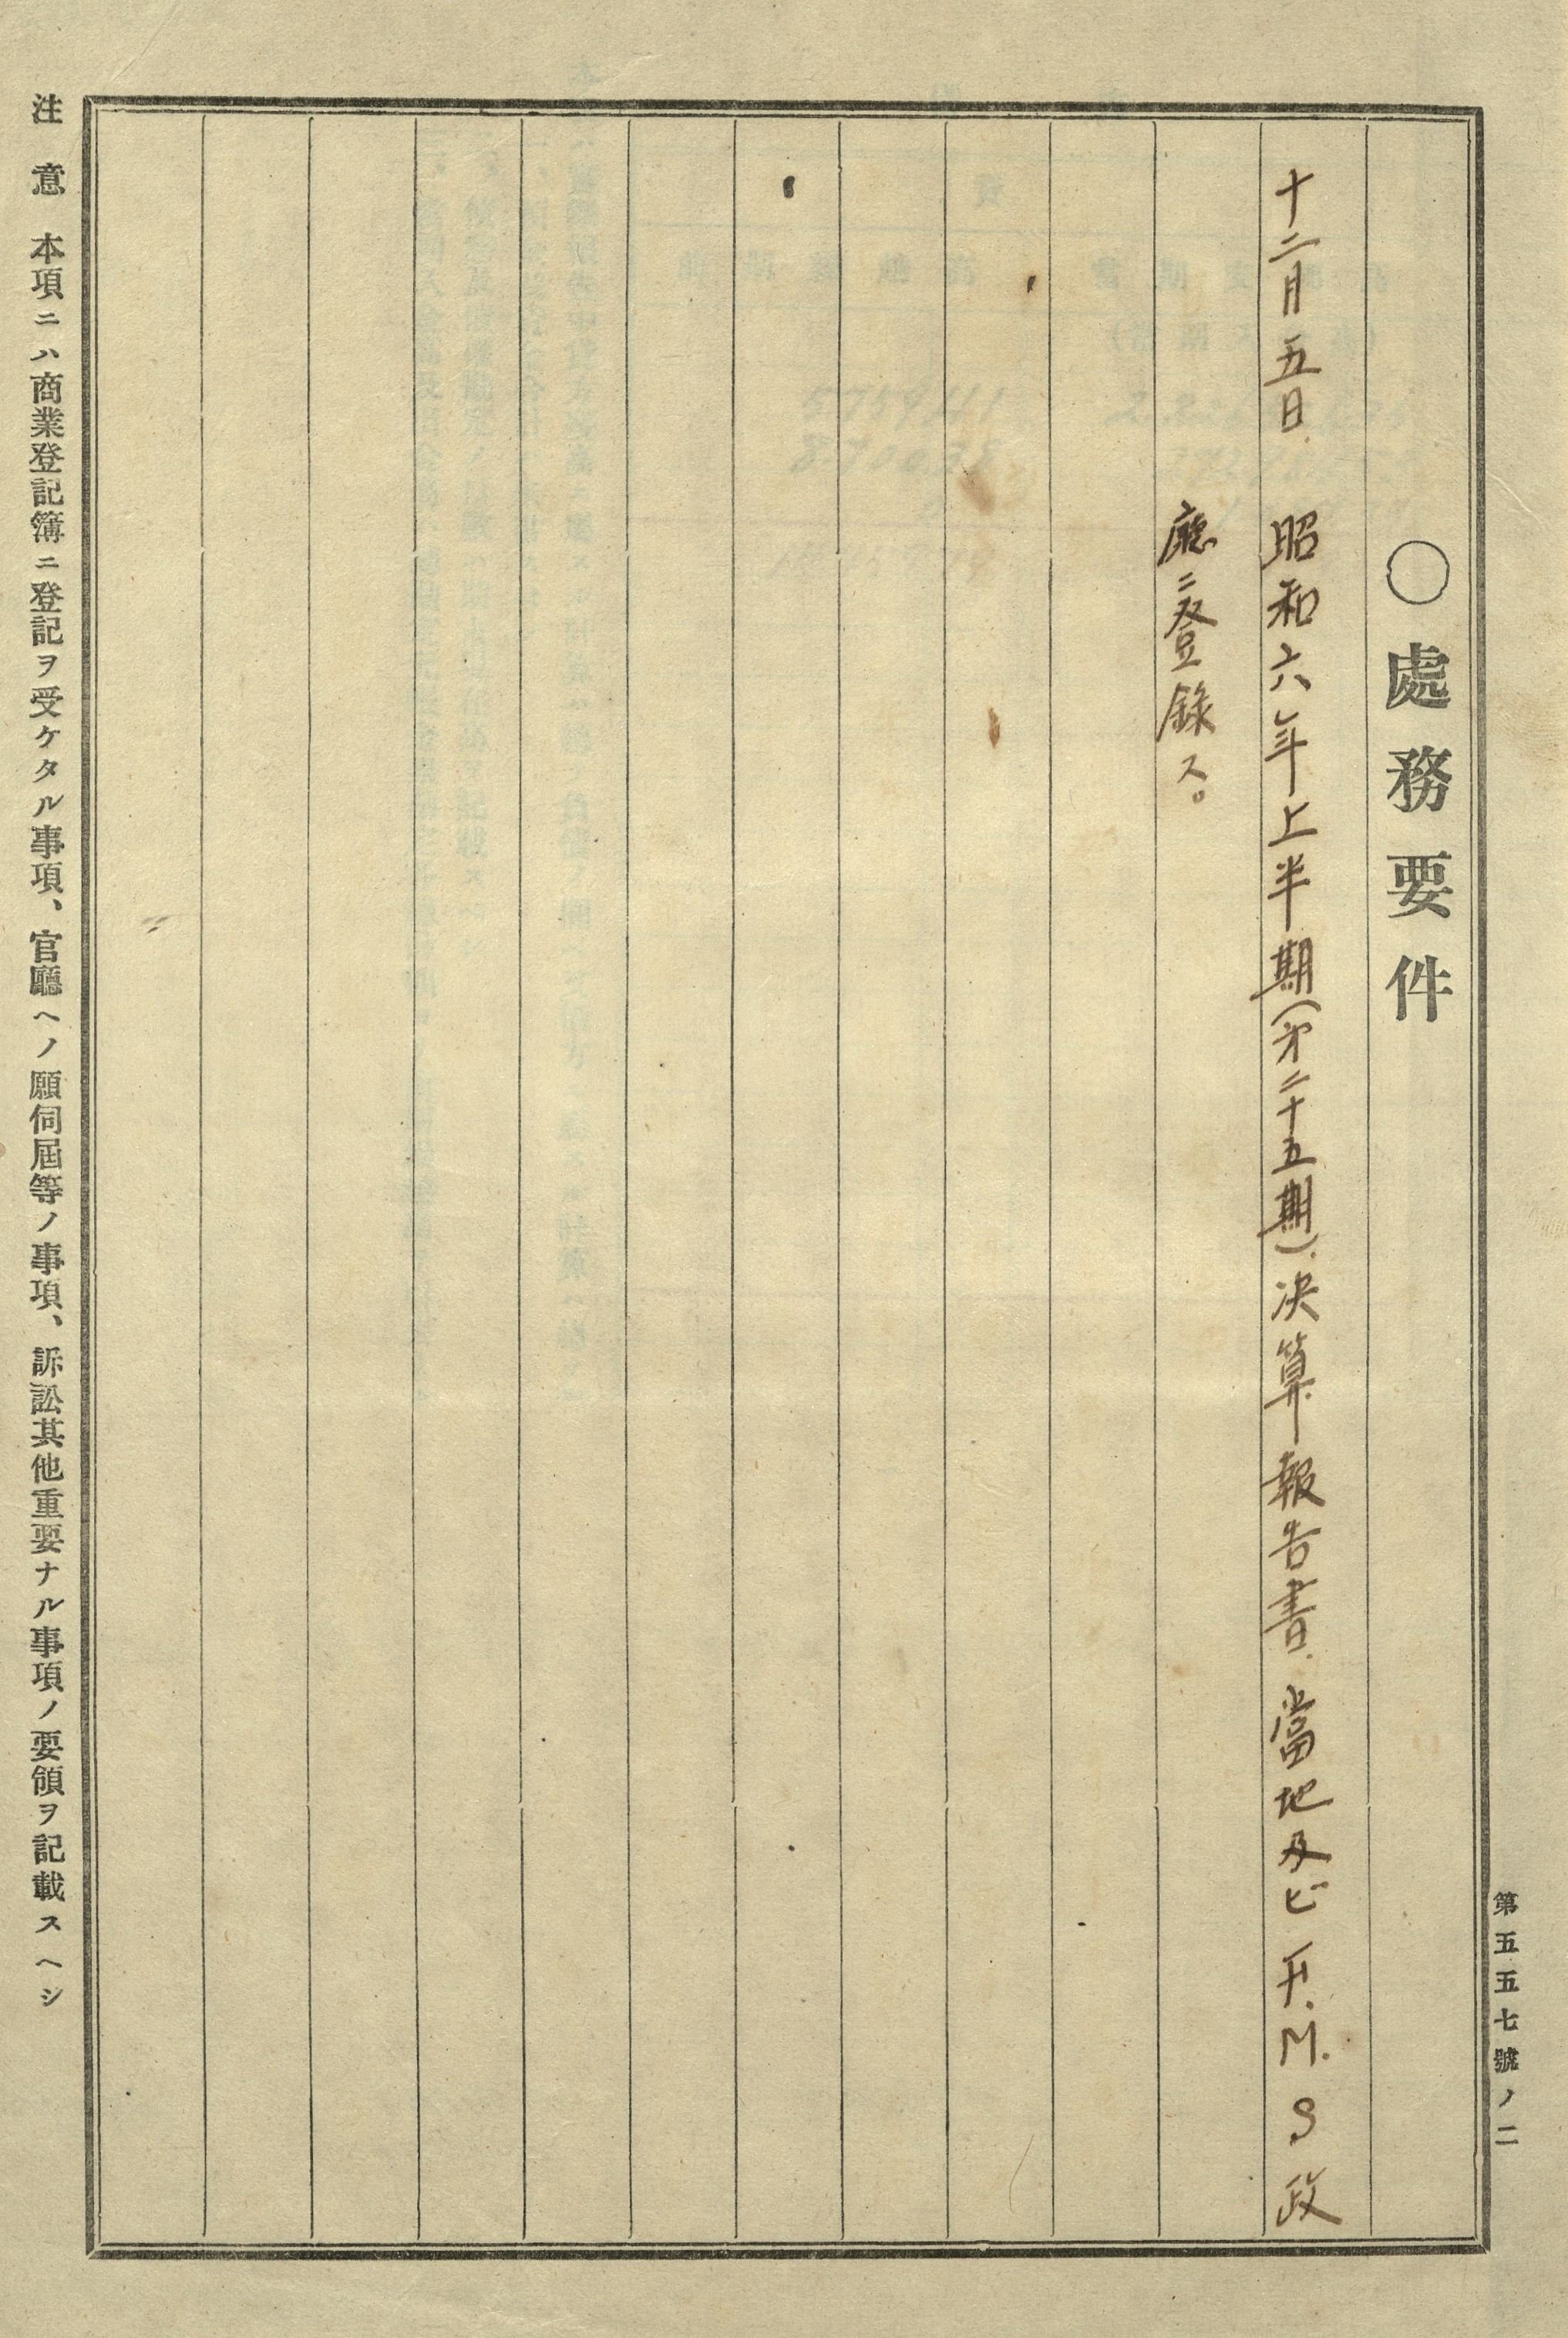 第五五七號ノ二
○處務要件
十二月五日. 昭和六年上半期(才二十五期). 决算報告書. 當地及ビF.M.S政
廳ニ登錄ス。
注意 本項ニハ商業登記簿ニ登記ヲ受ケタル事項、官廳ヘノ願伺屆等ノ事項、訴訟其他重要ナル事項ノ要領ヲ記載スヘシ